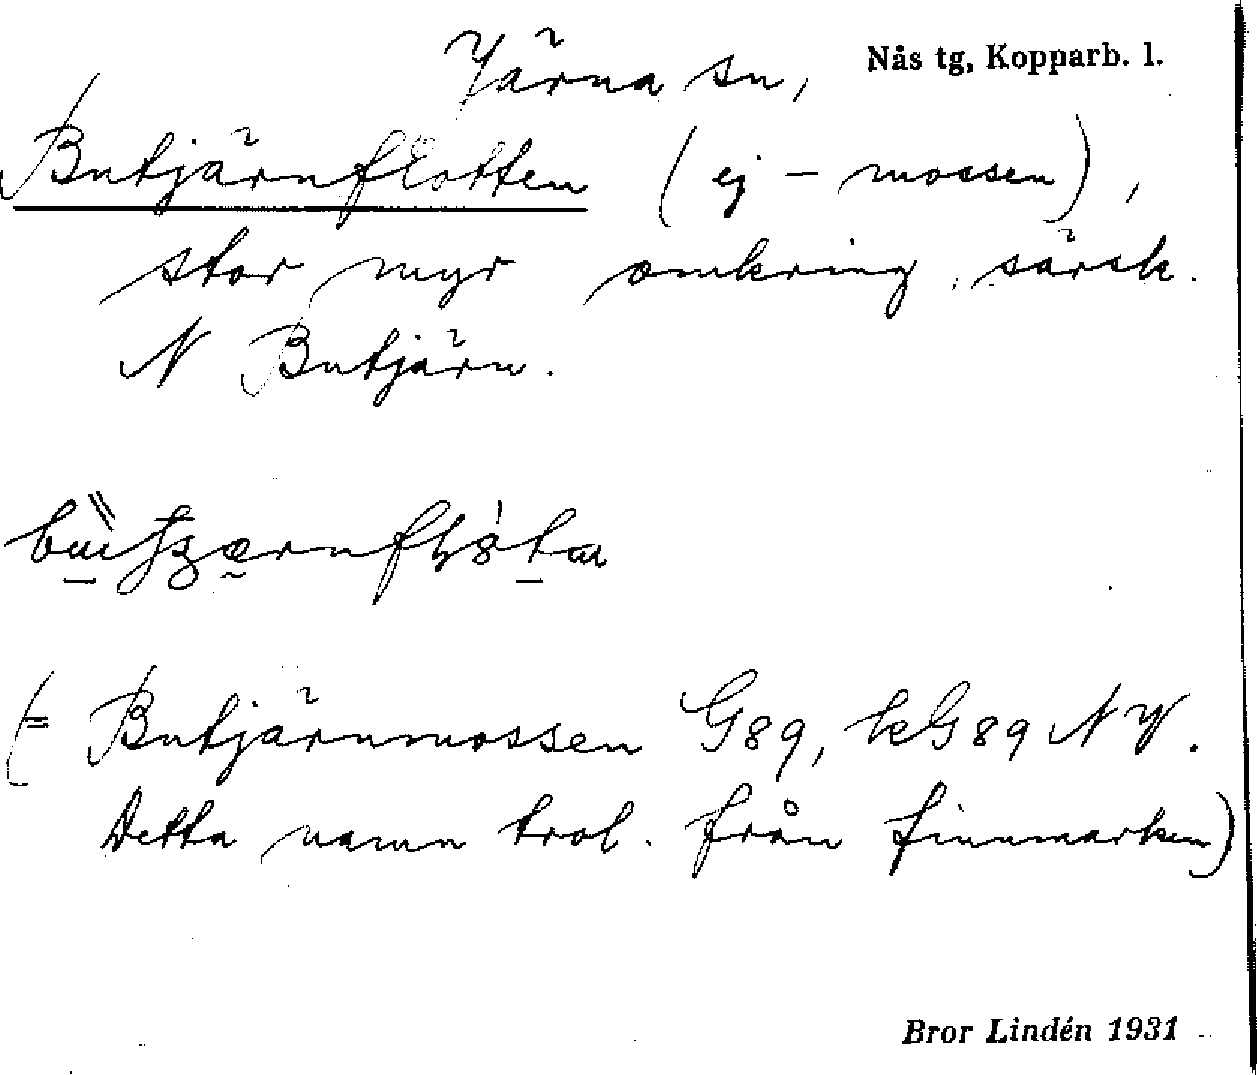 Järna sn, Nås tg, Kopparb. l.
Butjärnflotten (ej - mossen),
stor myr omkring, särsk.
N Butjärn.
(= Butjärnmossen G89, kG89 NV.
Detta namn trol. från finnmarken)
Bror Lindén 1931